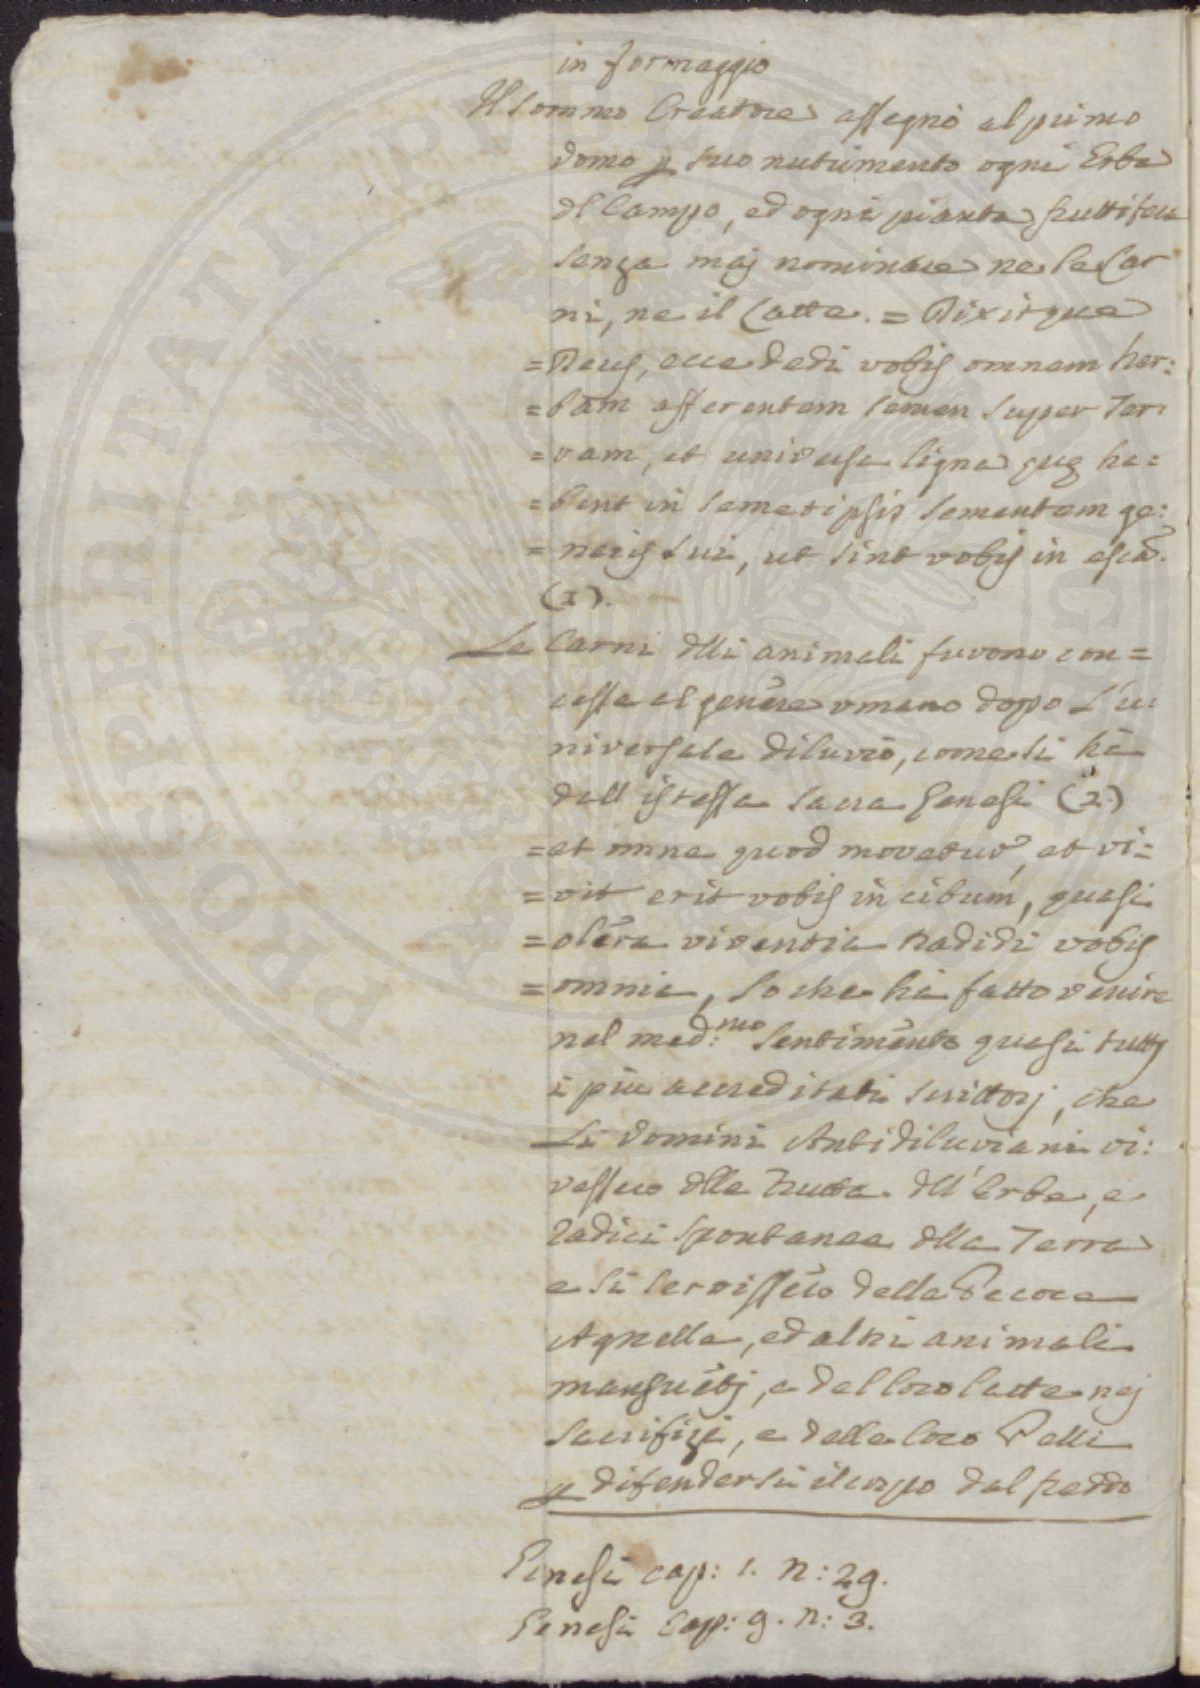 in formaggio
Il sommo Creatore assegnò al primo
Uomo p suo nutrimento ogni Erba
dl Campo, ed ogni pianta fruttifera
senza maj nominare ne le Car
ni, ne il Latte. = Dixitque
= Deus, ecce dedi vobis omnem her:
= bam afferentem semen super Ter:
= ram, et universa ligna quę ha=
= bent in semetipsis sementem ge:
= neris sui, ut sint vobis in escã.
(1).
Le Carni dlli animali furono con=
cesse al genere umano dopo l'u:
niversale diluvio, come si hà
dall istessa sacra Genesi (2.)
= et omne quod movetur, et vi=
= vit erit vobis in cibum, quasi
= olera viventia tradidi vobis
= omnia, lo che hà fatto venire
nel med:mo sentimento quasi tuttj
i più accreditati scrittorj, che
Li Uomini Antidiluviani vi:
vessero dlle frutta dll'Erbe, e
radici spontanee dlla Terra
e si servissero delle Pecore
Agnelle, ed altri animali
mansuetj, e del loro latte nej
sacrifizi, e delle loro Pelli
p difendersi il corpo dal freddo
Genesi cap: 1. n: 29.
Genesi Cap: 9. n: 3.
PROSPERITATI PUBLICAE